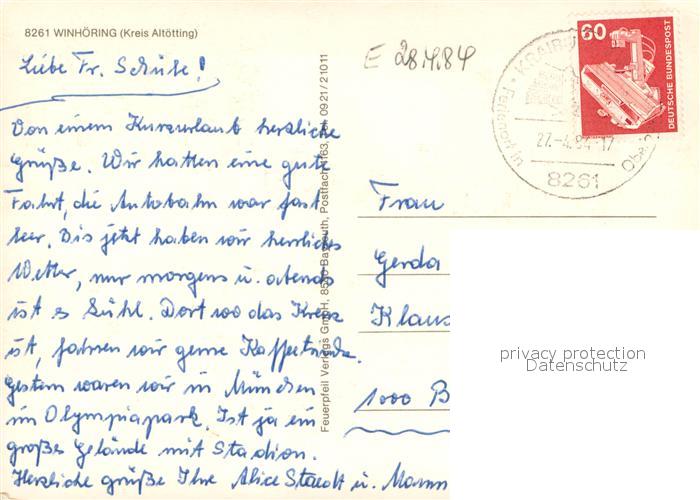 8261 WINHÖRING (Kreis Altötting)
Liebe Fr. Schulze!
E 28.4.84
60
DEUTSCHE BUNDESPOST
27.-4.84-17
8261
Von einem Kurzurlaub herzliche
Grüße. Wir hatten eine gute
Fahrt, die Autobahn war fast
leer. Bis jetzt haben wir herrliches
Wetter, nur morgens u. abends
ist es kühl. Dort wo das Kreuz
ist, fahren wir gerne Kaffeetrinken.
Gestern waren wir in München
im Olympiapark. Ist ja ein
großes Gelände mit Stadion.
Herzliche Grüße Ihre Alice Staedt u. Mann
Feuerpfeil Verlags GmbH, 8580 Bayreuth, Postfach 163, Tel. 0921/21011
Frau
Gerda
Klaus
1000 B
privacy protection
Datenschutz